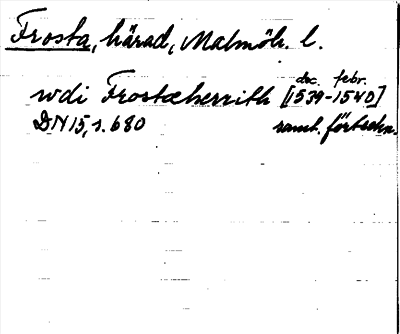 Frosta, härad, Malmöh. l.
dec. febr.
wdi Frostæherrith [1539-1540]
DN 15, s. 680 samt. förteckn.